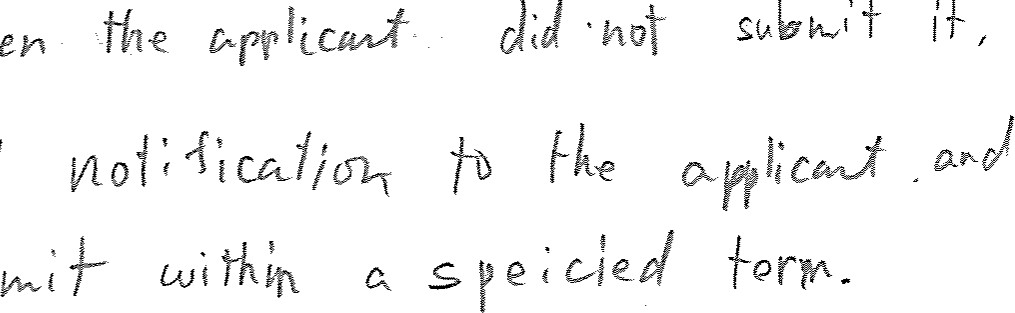 en the applicant did not submit it,
notification to the applicant and
mit within a speicied term.